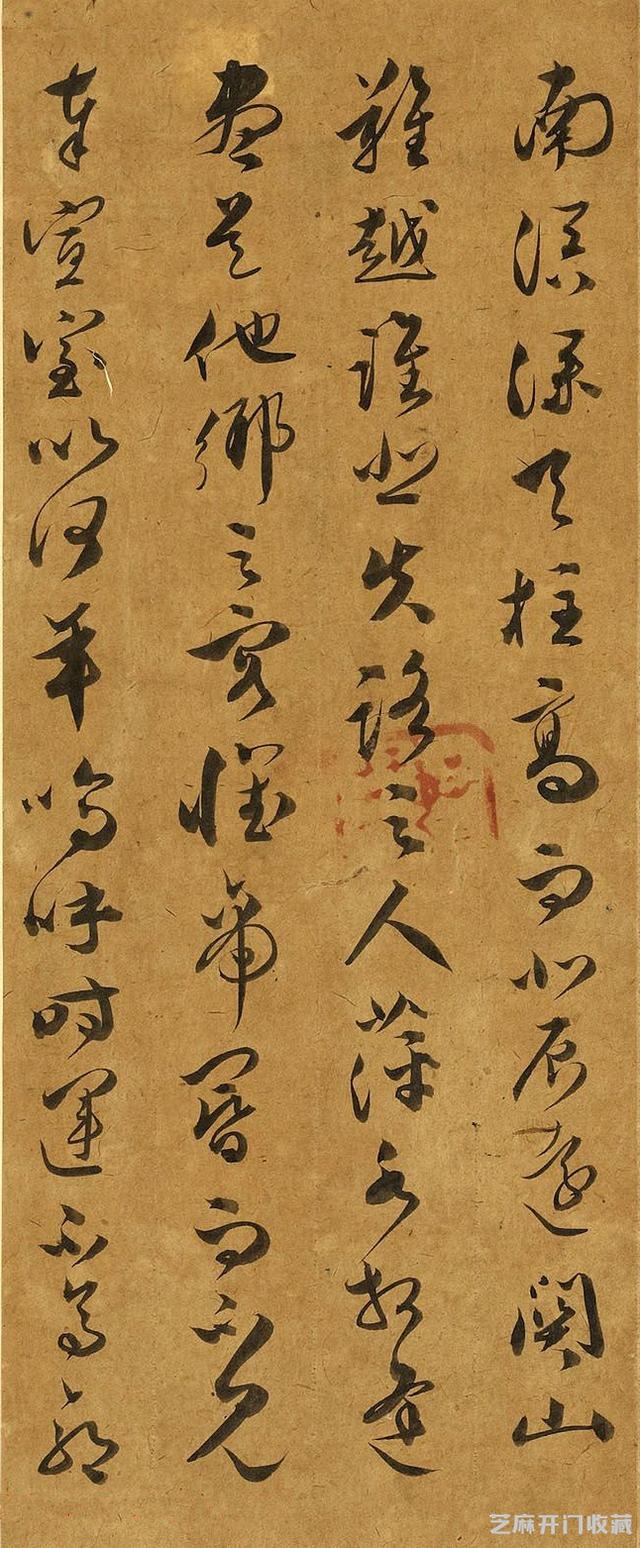 南溟深天柱高而北辰遠關山
難越誰悲失路之人萍水相逢
盡是他鄉之客懷帝閽而不見
奉宣室以何年嗚呼時運不齊命
芝麻开门收藏